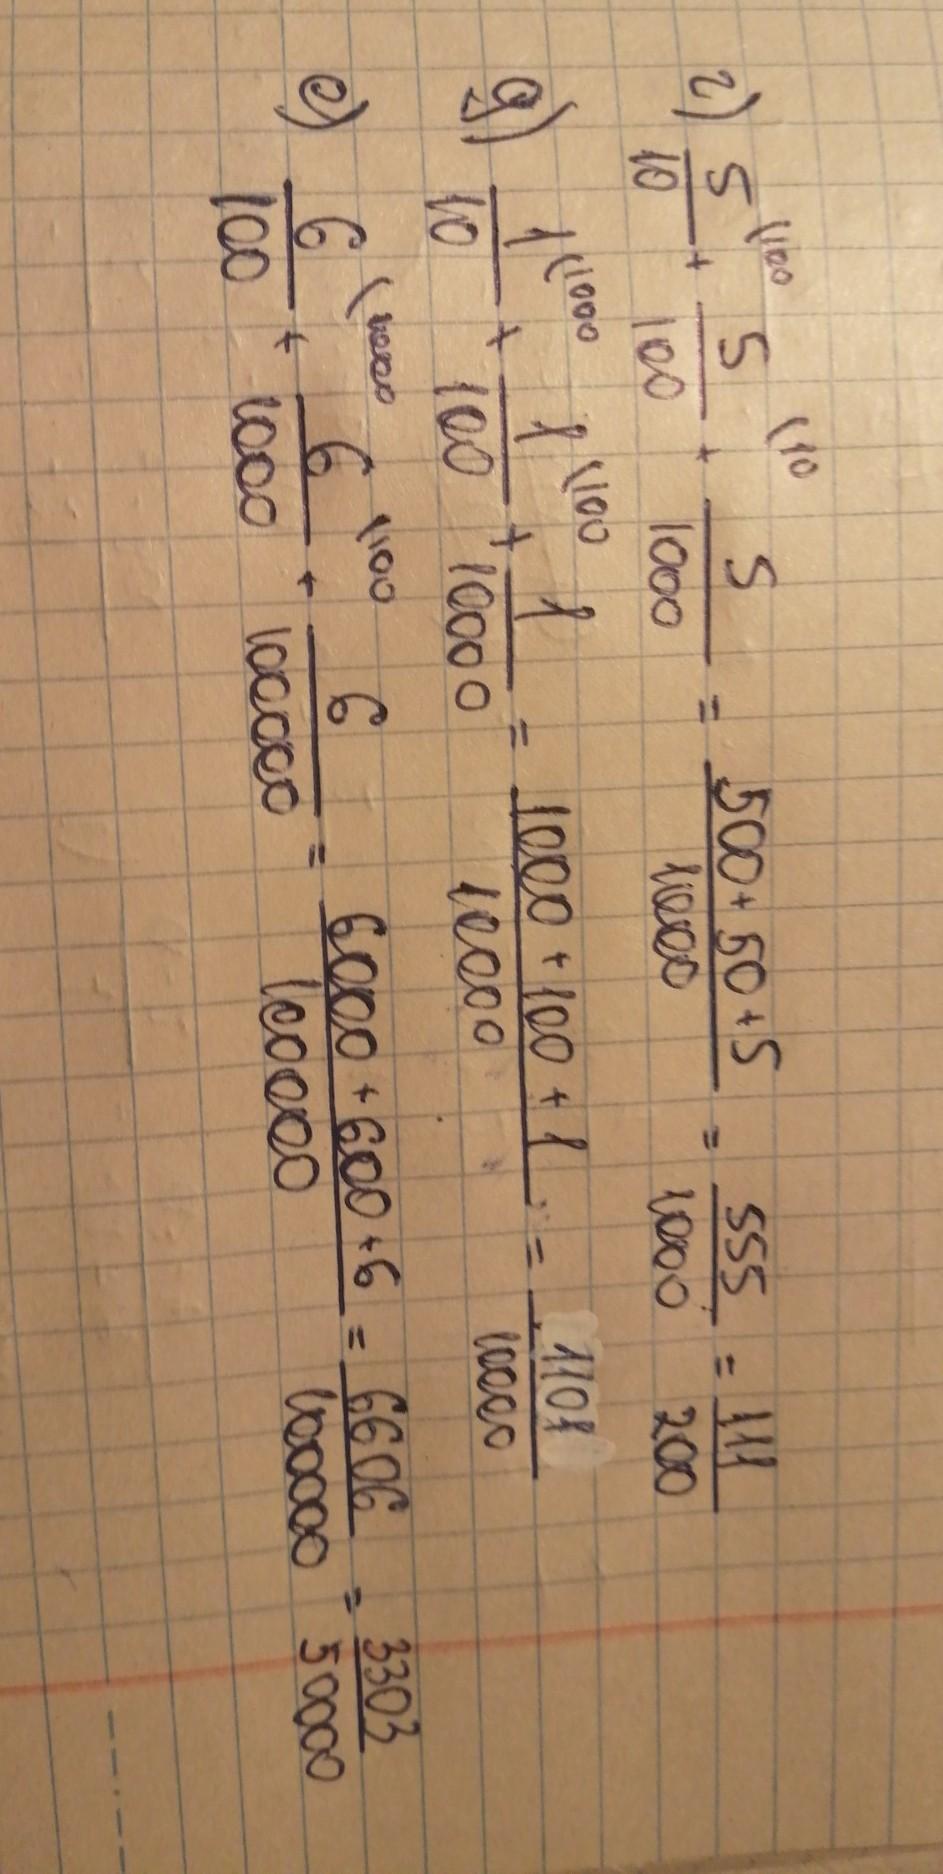 г) 5/10 \100 + 5/100 \10 + 5/1000 = 500 + 50 + 5/1000 = 555/1000 = 111/200
д) 1/10 \1000 + 1/100 \100 + 1/10000 = 1000 + 100 + 1/10000 = 1101/10000
е) 6/100 \1000 + 6/1000 \100 + 6/100000 = 6000 + 600 + 6/100000 = 6606/100000 = 3303/50000